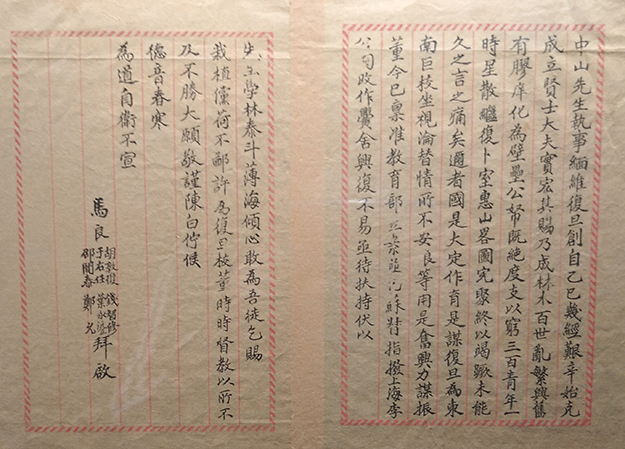 中山先生執事緬維復旦創自乙巳幾經艱辛始克
成立賢士大夫實宏其賜乃成林木百世亂繁興舊
有膠庠化為壁壘公帑既絶度支以窮三百青年一
時星散繼復卜室惠山畧圖完聚終以竭蹶未能
久之言之痛矣邇者國是大定作育是謀復旦為東
南巨校坐視淪替情所不安良等用是奮興力謀振
董今已稟准教育部立案並 蘇 指撥上海李
公祠改作黌舍興復不易亟待扶持伏以
先生學林泰斗薄海傾心敢為吾徒乞賜
栽植儻荷不鄙許為復旦校董時時督教以所不
及不勝大願敬謹陳白佇候
德音春寒
為道自衛不宣
馬良
胡敦復 錢智修
于右任 葉永鎏
邵聞泰 鄭允
拜啟